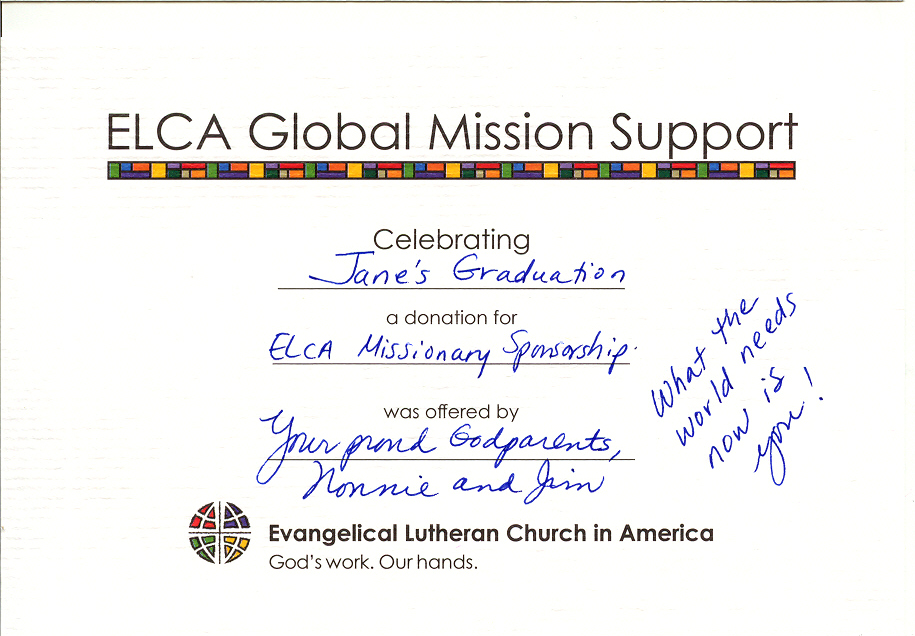 ELCA Global Mission Support
Celebrating
Jane's Graduation
a donation for
ELCA Missionary Sponsorship.
was offered by
Your proud Godparents,
Nonnie and Jim
What the
world needs
now is
you!
Evangelical Lutheran Church in America
God's work. Our hands.